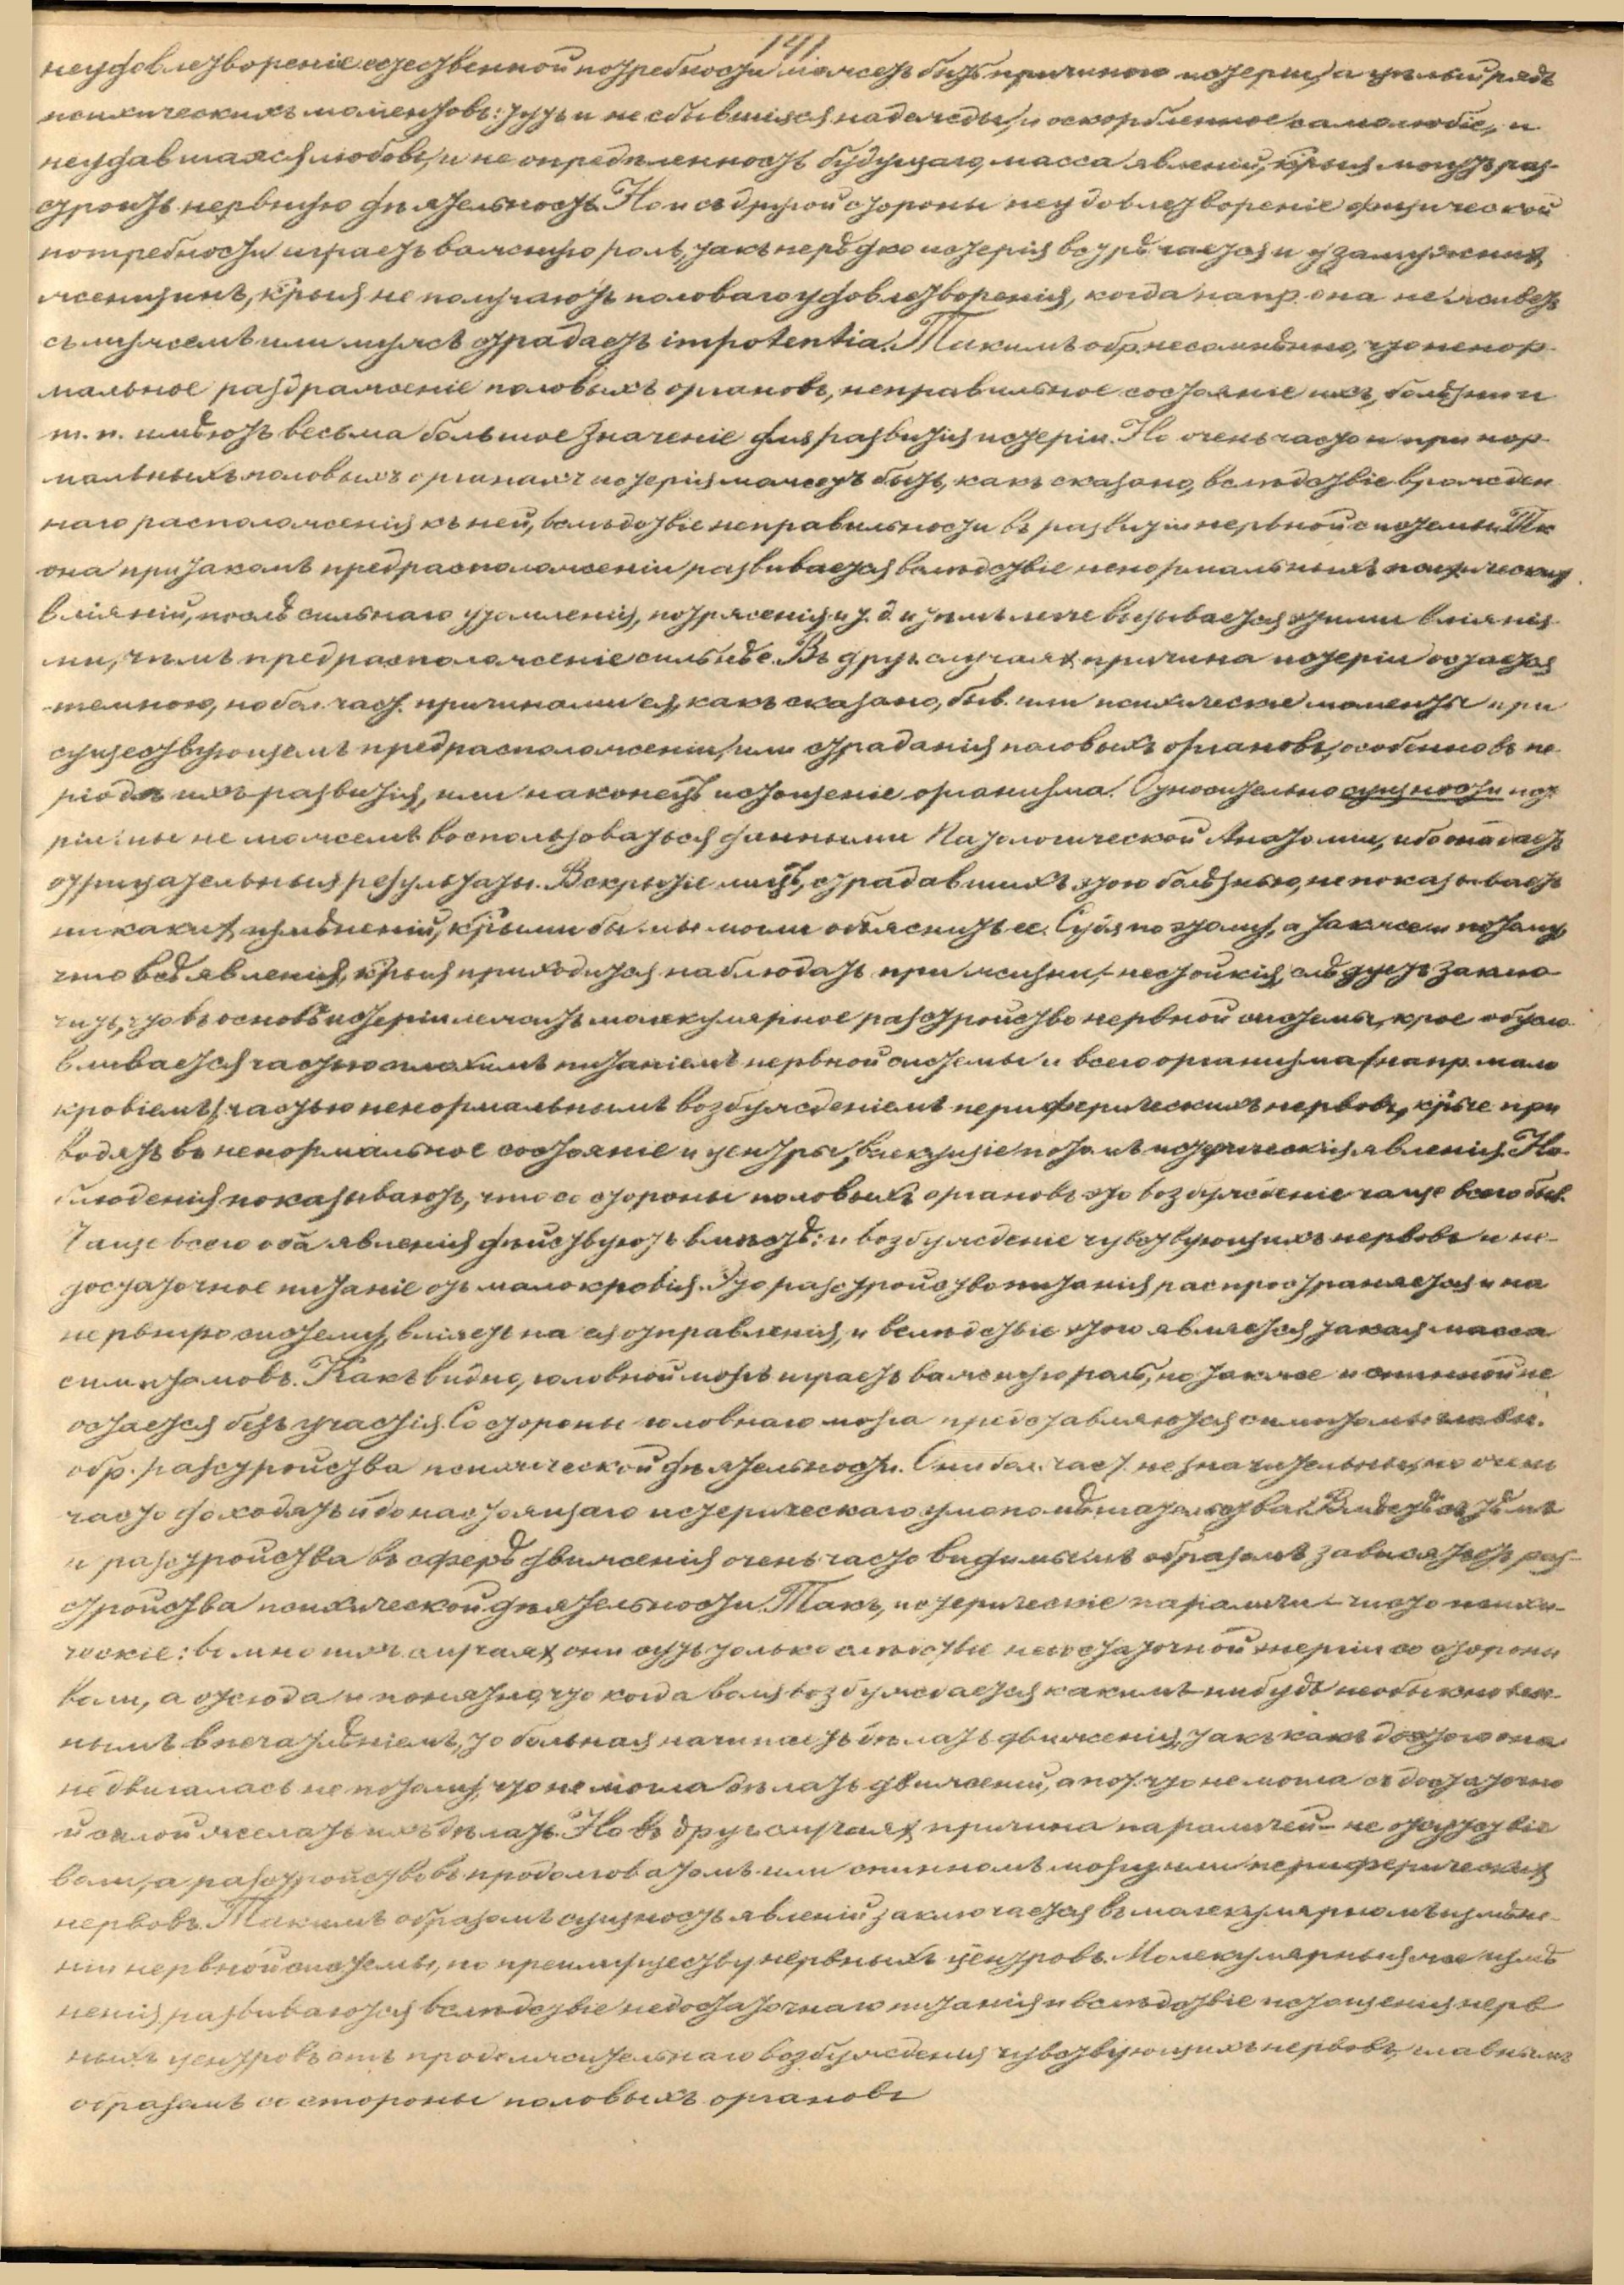 141
неудовлетвореніе естественной потребности можетъ быть причиною истеріи, а цѣлый рядъ
психическихъ моментовъ: тутъ и не сбывшіяся надежды, и оскорбленное самолюбіе, и
неудавшаяся любовь, и не опредѣленность будущаго, масса явленій, крыя могутъ раз-
строить нервную дѣятельность. Но и съ другой стороны неудовлетвореніе физической
потребности играетъ важную роль, такъ нерѣдко истерія встрѣчается и у замужних
женщинъ, крыя не получаютъ половаго удовлетворенія, когда напр. она не живетъ
съ мужемъ или мужъ страдаетъ impotentia. Такимъ обр. несомнѣнно, что ненор-
мальное раздраженіе половыхъ органовъ, неправильное состояніе ихъ, болѣзни и
т. п. имѣютъ весьма большое значеніе для развитія истеріи. Но очень часто и при нор-
мальныхъ половыхъ органахъ истерія можетъ быть, какъ сказано, вслѣдствіе врожден
наго расположенія къ ней, вслѣдствіе неправильности въ развитіи нервной системы. Тк
она при такомъ предрасположеніи развивается вслѣдствіе ненормальныхъ психических
вліяній, послѣ сильнаго утомленія, потрясенія и т. д. и тѣмъ легче вызывается этими вліянія
ми, чѣмъ предрасположеніе сильнѣе. Въ друг. случаях причина истеріи остается
темною, но бол. част. причинами ея, какъ сказано, быв. или психическіе моменты при
существующемъ предрасположеніи, или страданія половыхъ органовъ, особенно въ пе
ріодъ ихъ развитія, или наконецъ истощеніе организма. Относительно сущности исте
ріи: мы не можемъ воспользоваться данными Патологической Анатоміи, ибо она даетъ
отрицательныя результаты. Вскрытіе лицъ, страдавшихъ этою болѣзнью, не показываетъ
никаких измѣненій, крыми бы мы могли объяснить ее. Судя по этому, а также и потому
что всѣ явленія, крыя приходится наблюдать при жизни, - нестойкія, слѣдуетъ заклю
чить, что въ основѣ истеріи лежитъ молекулярное разстройство нервной системы, крое обусло
вливается частью плохимъ питаніемъ нервной системы и всего организма (напр. мало
кровіемъ), частью ненормальнымъ возбужденіемъ периферическихъ нервовъ, крые при
водятъ въ ненормальное состояніе и центры, влекущіе потомъ истерическія явленія. На
блюденія показываютъ, что со стороны половыхъ органовъ это возбужденіе чаще всего быв.
Чаще всего оба явленія дѣйствуютъ вмѣстѣ: и возбужденіе чувствующихъ нервовъ и не-
достаточное питаніе отъ малокровія. Это разстройство питанія распространяется и на
нервную систему, вліяетъ на ея отправленія, и вслѣдствіе этого является такая масса
симптомовъ. Какъ видно, головной мозгъ играетъ важную роль, но также и спинной не
остается безъ участія. Со стороны головнаго мозга представляются симптомы главн.
обр. разстройства психической дѣятельности. Они бол. част. незначительны, но очень
часто доходятъ и до настоящаго истерическаго умопомѣшательства. Вмѣстѣ съ тѣмъ
и разстройства въ сферѣ движенія очень часто видимымъ образомъ зависятъ отъ раз-
стройства психической дѣятельности. Такъ, истерическіе параличи - чисто психи-
ческіе: во многихъ случаях они суть только слѣдствіе недостаточной энергіи со стороны
воли, а отсюда и понятно, что когда воля возбуждается какимъ нибудь необыкновен-
нымъ впечатлѣніемъ, то больная начинаетъ дѣлать движенія, такъ какъ до этого она
не двигалась не потому, что не могла дѣлать движеній, а пот. что не могла съ достаточно
й силой желать ихъ дѣлать. Но въ друг. случаях причина параличей - не отсутствіе
воли, а разстройство въ продолговатомъ или спинномъ мозгу или периферических
нервовъ. Такимъ образомъ сущность явленій заключается въ молекулярномъ измѣне-
ніи нервной системы, по преимуществу нервныхъ центровъ. Молекулярныя же измѣ
ненія развиваются вслѣдствіе недостаточнаго питанія и вслѣдствіе истощенія нерв
ныхъ центровъ отъ продолжительнаго возбужденія чувствующихъ нервовъ, главнымъ
образомъ со стороны половыхъ органовъ